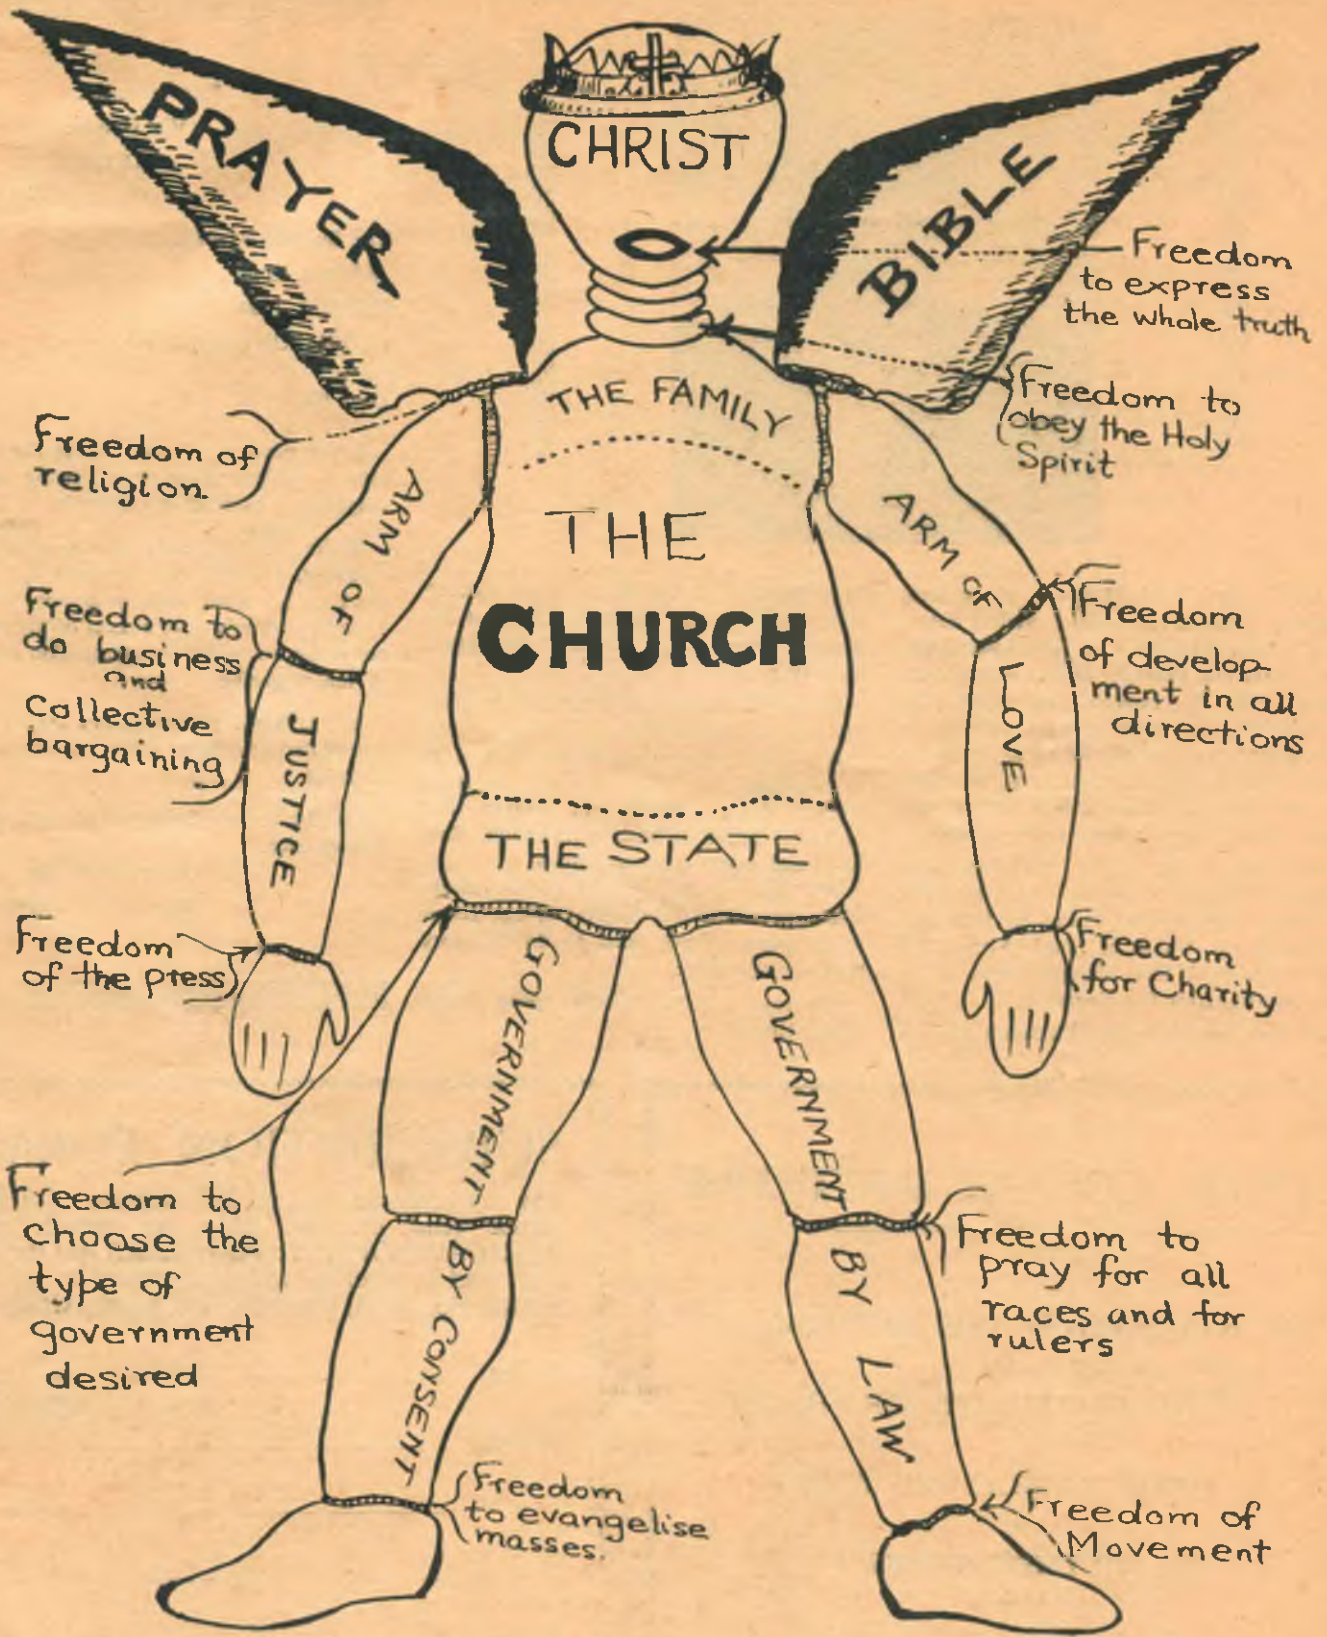 PRAYER
CHRIST
BIBLE
Freedom
to express
the whole truth
THE FAMILY
Freedom to
obey the Holy
Spirit
Freedom of
religion.
ARM OF
JUSTICE
THE
CHURCH
ARM OF
LOVE
Freedom to
do business
and
Collective
bargaining
Freedom
of develop-
ment in all
directions
THE STATE
Freedom
of the press
Freedom
for Charity
GOVERNMENT
BY CONSENT
GOVERNMENT
BY LAW
Freedom to
choose the
type of
government
desired
Freedom to
pray for all
races and for
rulers
Freedom
to evangelise
masses.
Freedom of
Movement